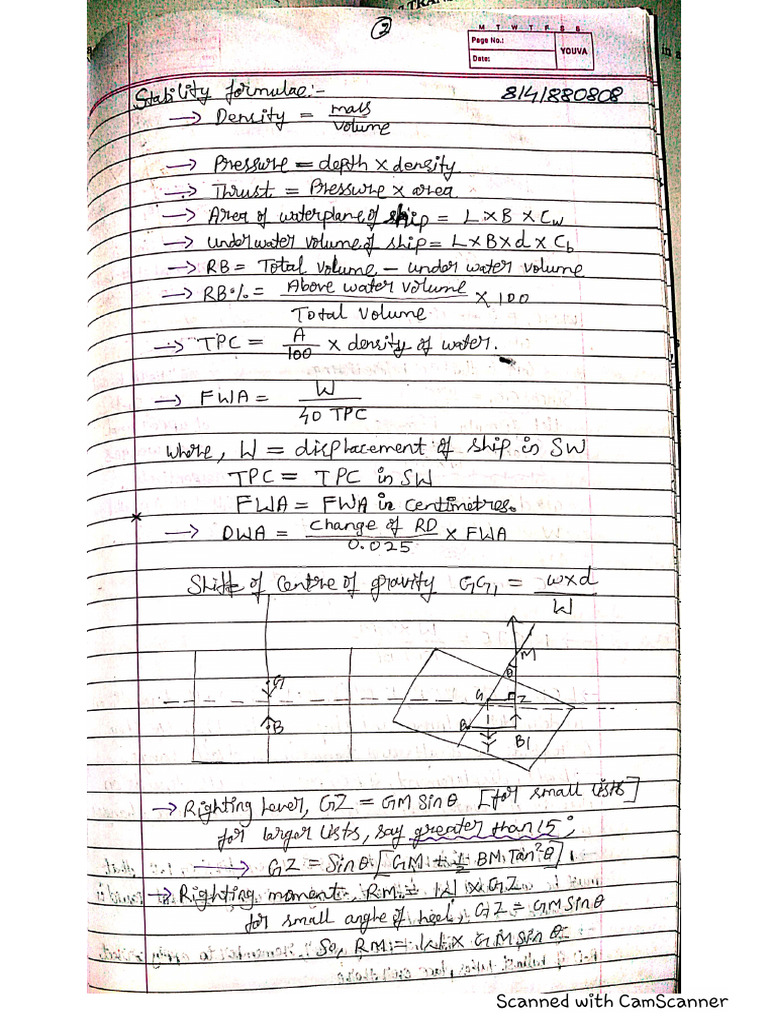 ②
M T W T F S S
Page No.:
Date:
YOUVA
Stability formulae:-
8141880808
→ Density = mass / volume
→ Pressure = depth × density
→ Thrust = Pressure × area
→ Area of waterplane of ship = L × B × Cw
→ underwater volume of ship = L × B × d × Cb
→ RB = Total volume - under water volume
→ RB% = Above water volume / Total volume × 100
→ TPC = A / 100 × density of water.
→ FWA = W / 40 TPC
where, W = displacement of ship in SW
TPC = TPC in SW
FWA = FWA in centimetres.
× → DWA = change of RD / 0.025 × FWA
Shift of centre of gravity GG1 = w×d / W
M
θ
G
G Z
B
B B1
→ Righting lever, GZ = GM Sin θ [for small lists]
for larger lists, say greater than 15°,
→ GZ = Sin θ [GM + 1/2 BM Tan² θ]
→ Righting moment, RM = W × GZ
for small angle of heel, GZ = GM Sin θ
So, RM = W × GM Sin θ
Scanned with CamScanner